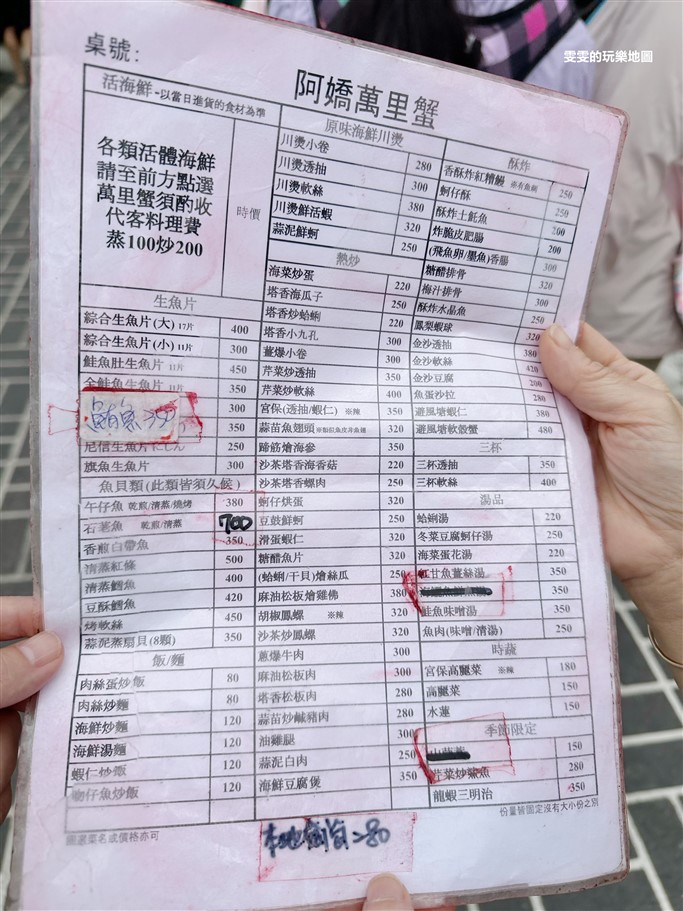 雯雯的玩樂地圖
桌號:
阿嬌萬里蟹
活海鮮-以當日進貨的食材為準
各類活體海鮮
請至前方點選
萬里蟹須酌收
代客料理費
蒸100炒200
時價
生魚片
綜合生魚片(大) 17片 400
綜合生魚片(小) 11片 300
鮭魚肚生魚片 11片 450
全鮭魚生魚片 11片 350
鮪魚350 300
尼信生魚片にしん 250
旗魚生魚片 300
魚貝類(此類皆須久候)
午仔魚 乾煎/清蒸/燒烤 380
魚 乾煎/清蒸 700
香煎白帶魚 350
清蒸紅條 500
清蒸鱈魚 400
豆酥鱈魚 420
烤軟絲 450
蒜泥蒸扇貝(8顆) 350
飯/麵
肉絲蛋炒飯 80
肉絲炒麵 80
海鮮炒麵 120
海鮮湯麵 120
蝦仁炒飯 120
吻仔魚炒飯 120
原味海鮮川燙
川燙小卷 280
川燙透抽 300
川燙軟絲 380
川燙活蝦 320
蒜泥鮮蚵 250
熱炒
海菜炒蛋 220
塔香海瓜子 250
塔香炒蛤蜊 220
塔香小九孔 300
薑爆小卷 300
芹菜炒透抽 350
芹菜炒軟絲 400
宮保(透抽/蝦仁) ※辣 350
蒜苗魚翅頭 350
蹄筋燴海參 350
沙茶塔香海香菇 220
沙茶塔香螺肉 350
蚵仔烘蛋 320
豆鼓鮮蚵 250
滑蛋蝦仁 320
糖醋魚片 320
(蛤蜊/干貝)燴絲瓜 250
麻油松板燴雞佛 380
胡椒鳳螺 ※辣 320
沙茶炒鳳螺 320
蔥爆牛肉 300
麻油松板肉 300
塔香松板肉 280
蒜苗炒鹹豬肉 280
油雞腿 300
蒜泥白肉 250
海鮮豆腐煲 350
酥炸
香酥炸紅糟鰻 250
蚵仔酥 250
酥炸土魠魚 200
炸脆皮肥腸 200
(飛魚卵/墨魚)香腸 300
糖醋排骨 320
梅汁排骨 300
酥炸水晶魚 250
鳳梨蝦球 320
金沙透抽 380
金沙軟絲 420
金沙豆腐 200
魚蛋沙拉 280
避風塘蝦仁 380
避風塘軟殼蟹 480
三杯
三杯透抽 350
三杯軟絲 400
湯品
蛤蜊湯 220
冬菜豆腐蚵仔湯 250
海菜蛋花湯 220
紅甘魚薑絲湯 350
鮭魚味噌湯 350
魚肉(味噌/清湯) 250
時蔬
宮保高麗菜 ※辣 180
高麗菜 150
水蓮 150
季節限定
150
芹菜炒鯊魚 280
龍蝦三明治 350
份量皆固定沒有大小份之別
80